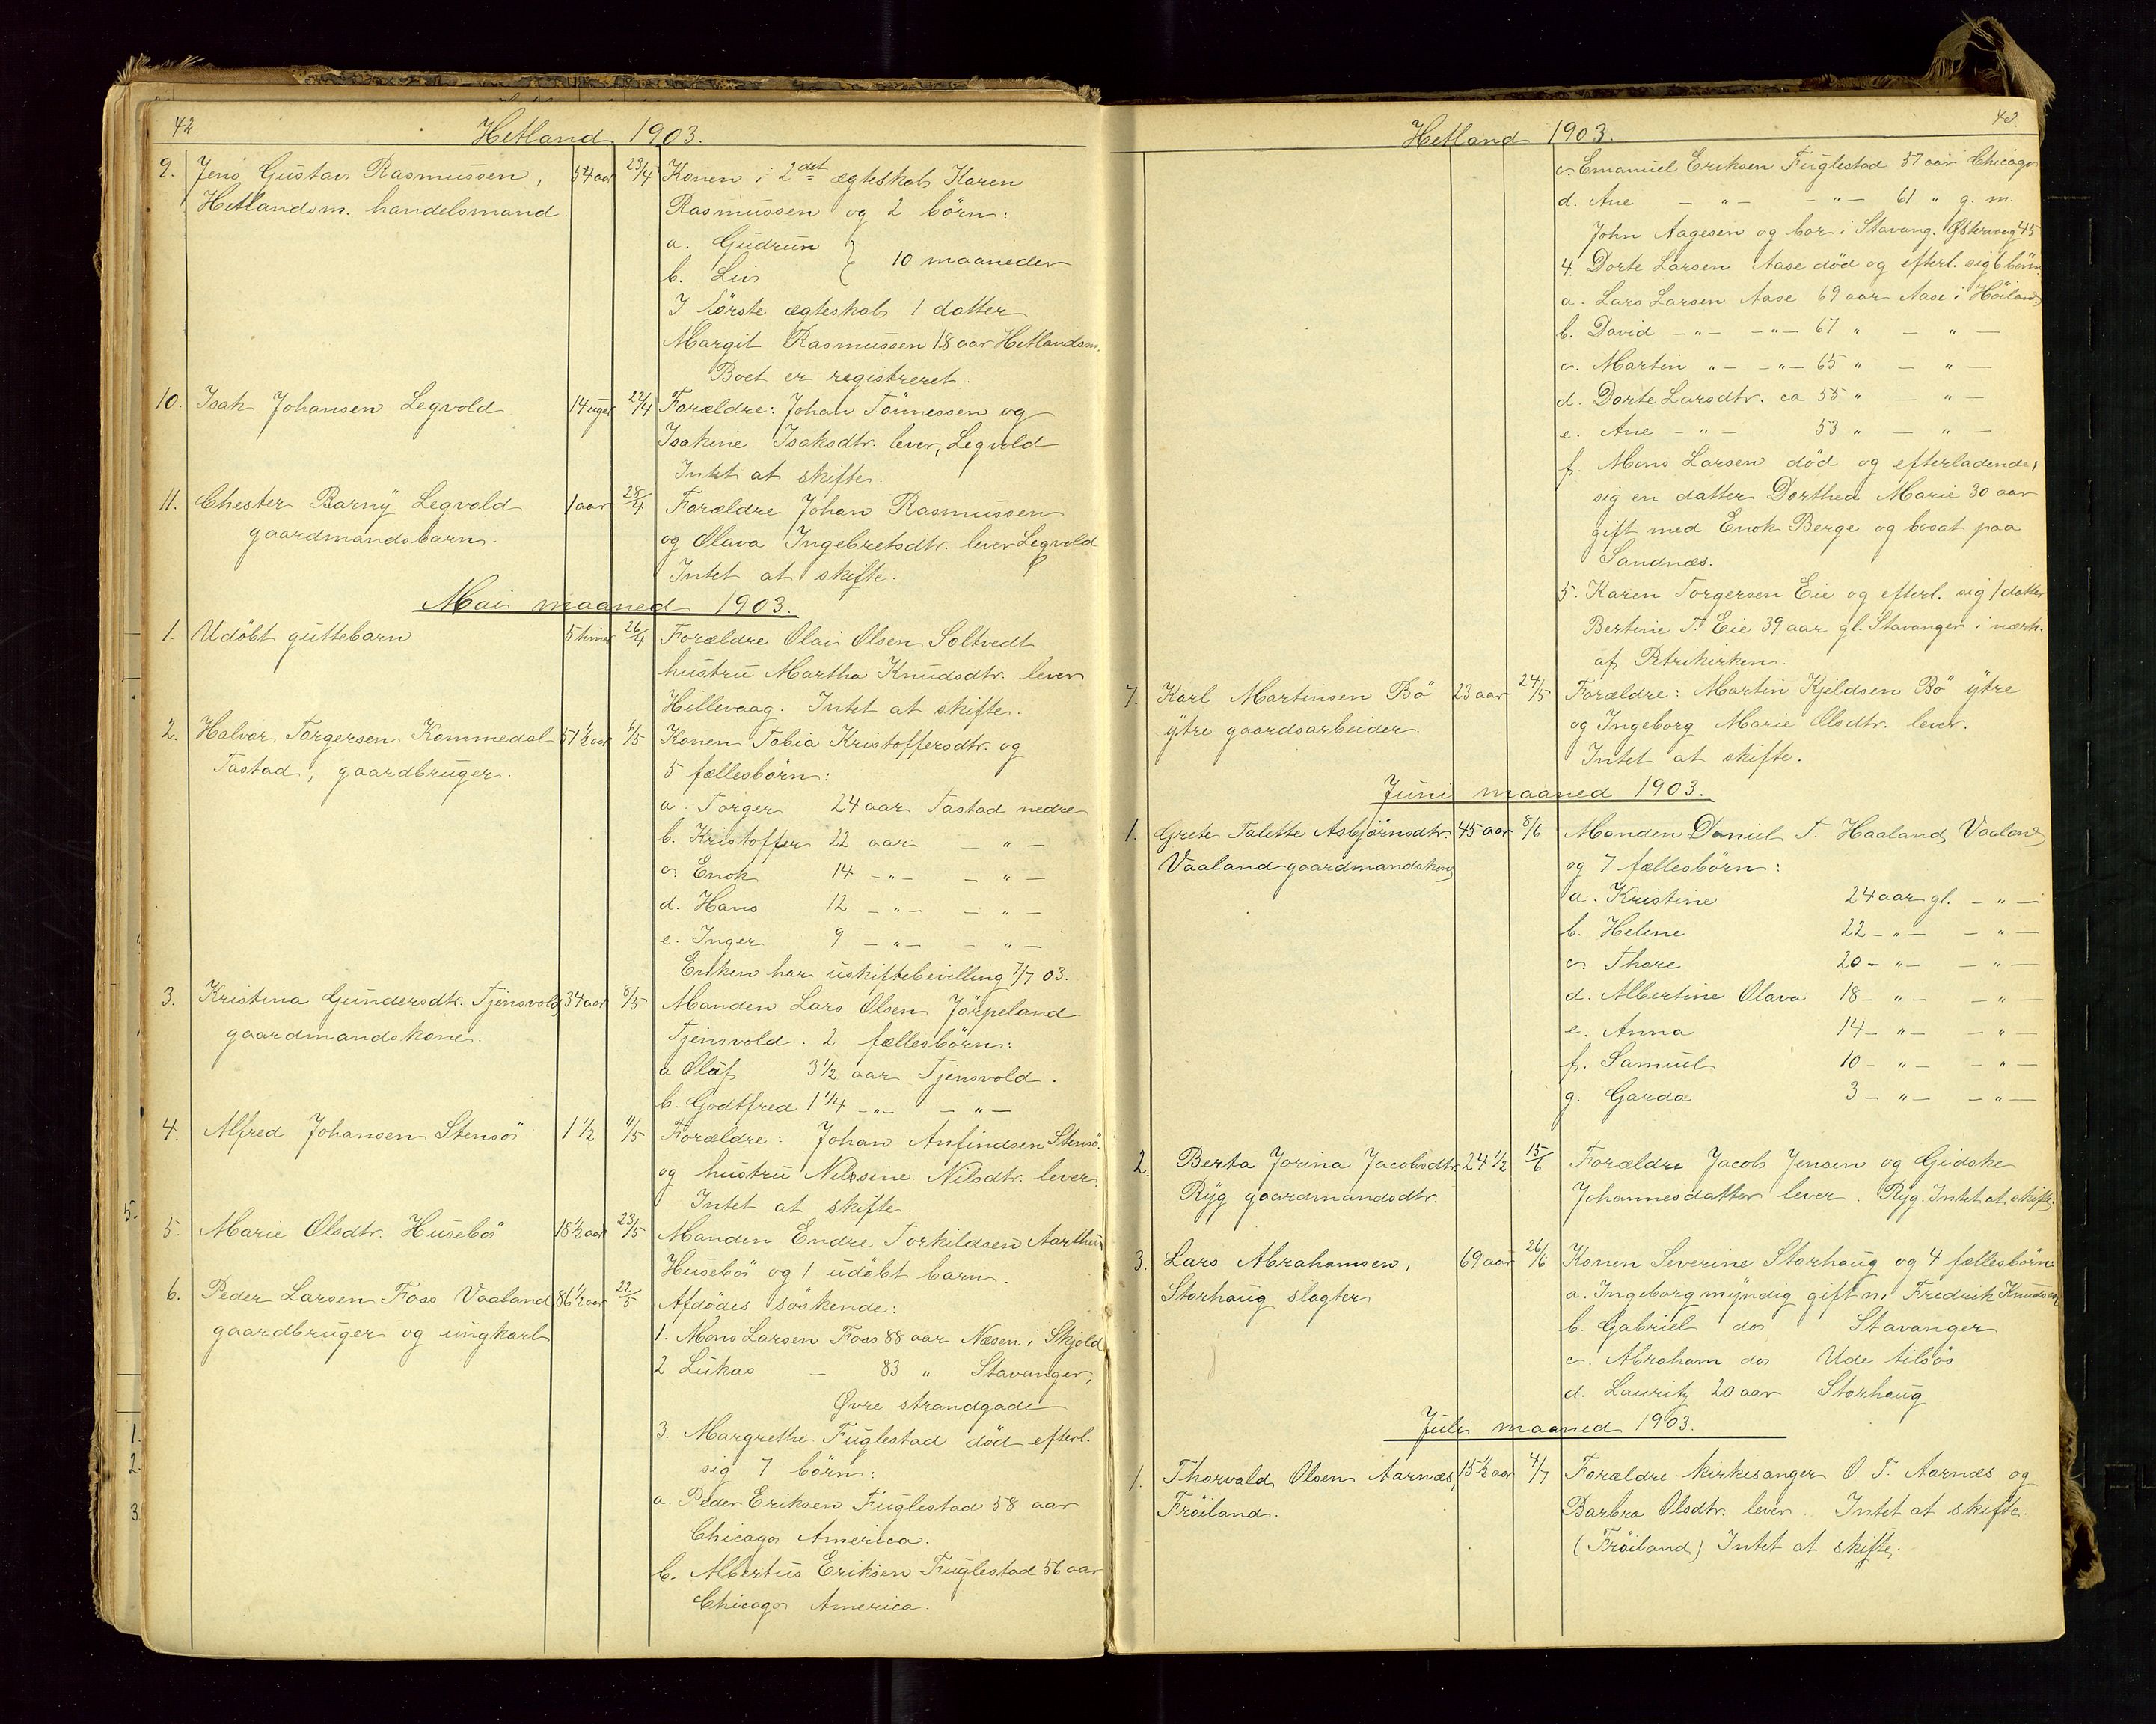 42.
Hetland 1903.
9. Jens Gustav Rasmussen, 54 aar 23/4 Konen i 2det ægteskab Karen
Hetlandsm. handelsmand. Rasmussen og 2 börn:
a. Gudrun } 10 maaneder
b. Liv
I förste ægteskab 1 datter
Margit Rasmussen 18 aar Hetlandsm.
Boet er registreret.
10. Isak Johansen Legvold 14 uger 22/4 Forældre: Johan Tönnessen og
Isakine Isaksdtr. lever, Legvold
Intet at skifte.
11. Chester Barny Legvold 1 aar 28/4 Forældre Johan Rasmussen
gaardmandsbarn. og Olava Ingebretsdtr. lever Legvold
Intet at skifte.
Mai maaned 1903.
1. Udöbt guttebarn 5 timer 26/4 Forældre Olai Olsen Soltvedt
hustru Martha Knudsdtr. lever
Hillevaag. Intet at skifte.
2. Halvor Torgersen Kommedal 51 1/2 aar 6/5 Konen Tobia Kristoffersdtr. og
Tastad, gaardbruger. 5 fællesbörn:
a. Torger 24 aar Tastad nedre
b. Kristoffer 22 aar — " —
c. Enok 14 — " — — " —
d. Hans 12 — " — — " —
e. Inger 9 — " — — " —
Enken har uskiftebevilling 7/7 03.
3. Kristina Gundersdtr. Tjensvold 34 aar 8/5 Manden Lars Olsen Jörpeland
gaardmandskone. Tjensvold. 2 fællesbörn:
a Olaf 3 1/2 aar Tjensvold.
b. Godtfred 1 1/4 — " — — " —
4. Alfred Johansen Stensö 1 1/2 11/5 Forældre: Johan Anfindsen Stensö.
og hustru Nilssine Nilsdtr. lever.
Intet at skifte.
5. Marie Olsdtr. Husebö 18 1/2 aar 23/5 Manden Endre Torkildsen Aarthun
Husebö og 1 udöbt barn.
6. Peder Larsen Foss Vaaland 86 1/2 aar 22/5 Afdödes söskende:
gaardbruger og ungkarl 1. Mons Larsen Foss 88 aar Næsen i Skjold
2 Lukas — 83 " Stavanger,
Øvre strandgade
3. Margrethe Fuglestad död efterl.
sig 7 börn:
a. Peder Eriksen Fuglestad 58 aar
Chicago America.
b. Albertus Eriksen Fuglestad 56 aar
Chicago America.
5.
1.
2.
3
43
Hetland 1903.
c. Emanuel Eriksen Fuglestad 57 aar Chicago
d. Ane — " — — " — 61 " g. m.
John Aagesen og bor i Stavang. Østervaag 45
4. Dorte Larsen Aase död og efterl. sig 6 börn.
a. Lars Larsen Aase 69 aar Aase i Höiland
b. David — " — — " — 67 " — " —
c. Martin " — — " — 65 " — " —
d. Dorte Larsdtr. ca 55 " — " —
e. Ane — " — 53 " — " —
f. Mons Larsen död og efterladende
sig en datter Dorthea Marie 30 aar
gift med Enok Berge og bosat paa
Sandnæs.
5. Karen Torgersen Eie og efterl. sig 1 datter
Bertine T. Eie 39 aar gl. Stavanger i nærh.
af Petrikirken.
7. Karl Martinsen Bö 23 aar 24/5 Forældre: Martin Kjeldsen Bö ytre
ytre gaardsarbeider. og Ingeborg Marie Olsdtr. lever.
Intet at skifte.
Juni maaned 1903.
1. Grete Talette Asbjörnsdtr. 45 aar 8/6 Manden Daniel T. Haaland, Vaaland
Vaaland gaardmandskone og 7 fællesbörn:
a. Kristine 24 aar gl. — " —
b. Helene 22 — " — — " —
c. Thore 20 — " — — " —
d. Albertine Olava 18 — " — — " —
e. Anna 14 — " — — " —
f. Samuel 10 — " — — " —
g. Garda 3 — " — — " —
2. Berta Jorina Jacobsdtr. 24 1/2 15/6 Forældre Jacob Jensen og Gidske
Ryg gaardmandsdtr. Johannesdatter lever. Ryg. Intet at skifte.
3. Lars Abrahamsen, 69 aar 26/6 Konen Severine Storhaug og 4 fællesbörn
Storhaug slagter a. Ingeborg myndig gift m. Fredrik Knudsen
b. Gabriel do Stavanger
c. Abraham do Ude tilsös
d. Lauritz 20 aar Storhaug
Juli maaned 1903.
1. Thorvald Olsen Aarnæs, 15 1/2 aar 4/7 Forældre: kirkesanger O. T. Aarnæs og
Fröiland. Barbra Olsdtr. lever. Intet at skifte.
(Fröiland) Intet at skifte.